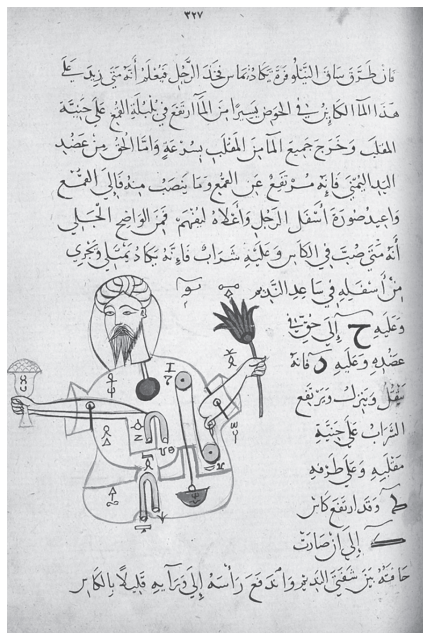 ٣٢٧
فان طرق ساق النيلوفرة يكاد يماس فخذ الرجل فيعلم أنه متى زيد على
هذا الماء الكاين في الحوض يسيرا من الماء ارتفع في بلبلة القمع على جنبتة
المقلب وخرج جميع الماء من المقلب بسرعة واما الحق من عضد
اليد اليمنى فانه مرتفع عن القمع وما ينصب منه فالى القمع
واعيد صورة اسفل الرجل واعلاه ليفهم فمن الواضح الجلي
أنه متى صب في الكاس وعليه شراب فانه يكاد يمتلى ويجري
من أسفله في ساعد النديم
وعليه ح إلى حق في
عضده وعليه فانه
يثقل وينزل ويرتفع
الشراب على جنبة
مقلبه وعلى طرفه
ط وقد ارتفع كاس
ك إلى أن صارت
حافته بين شفتي النديم واندفع رأسه إلى ورآيه قليلا بالكاس